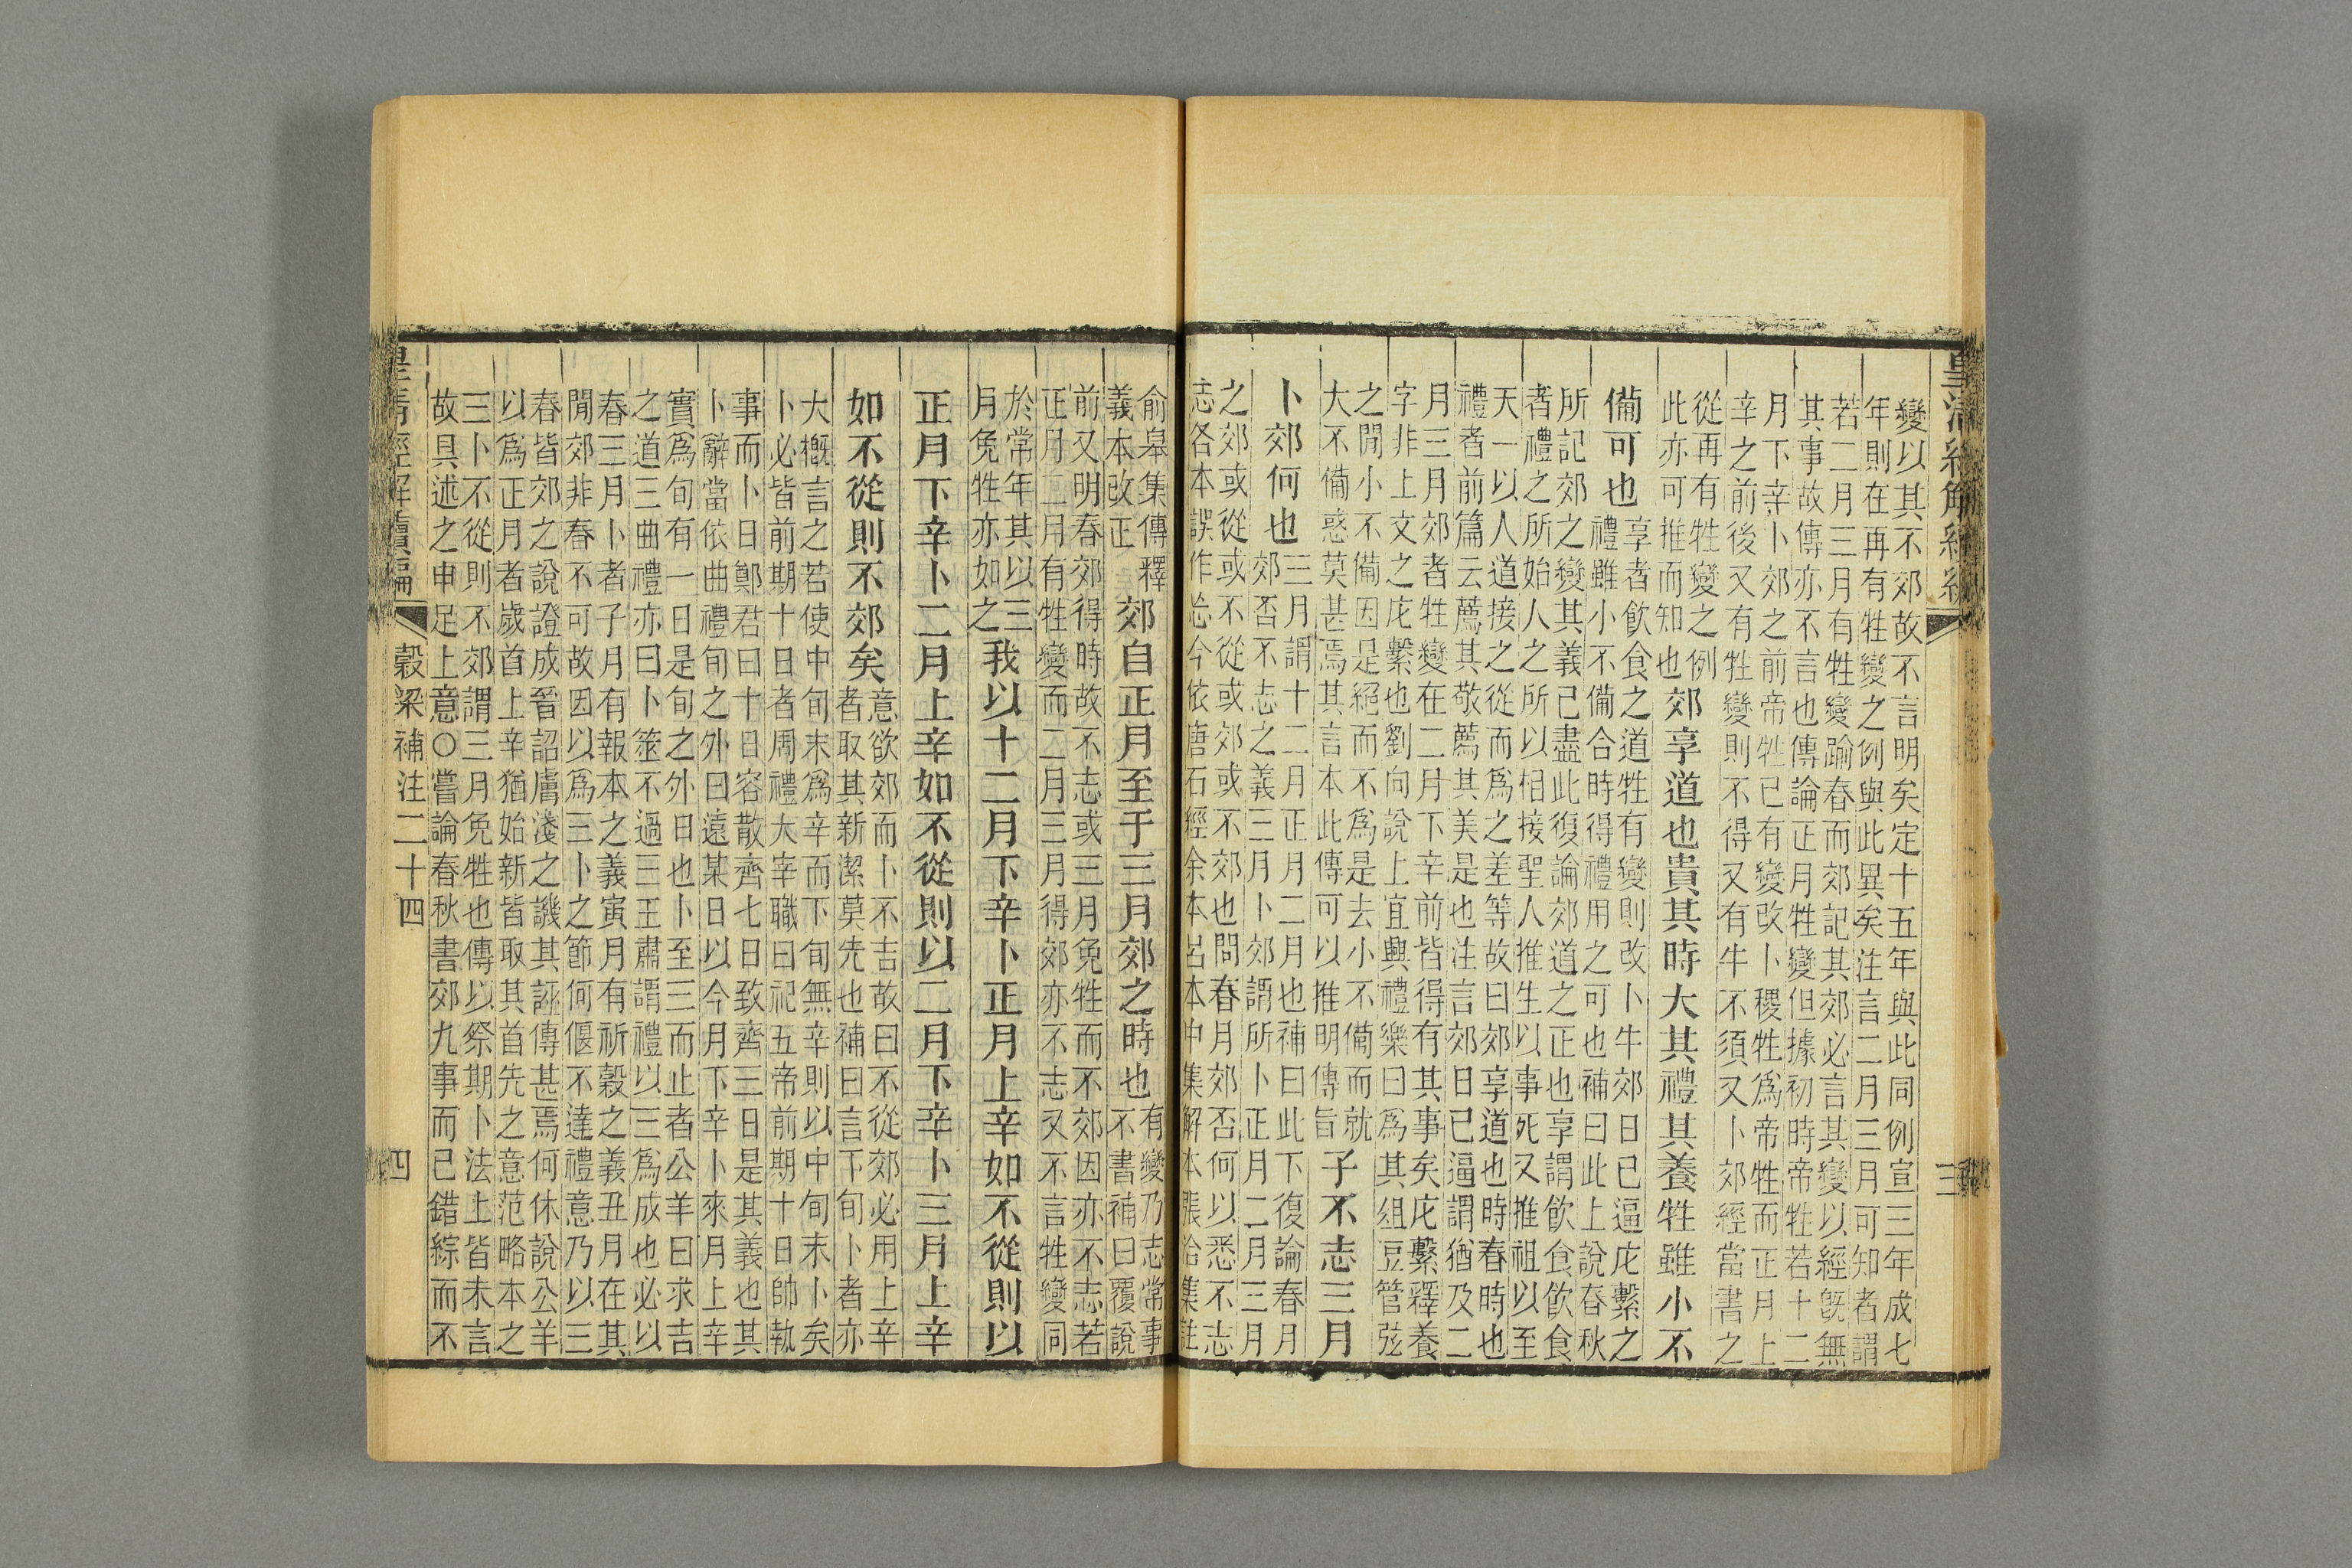 皇清經解續編
三
變以其不郊故不言明矣定十五年與此同例宣三年成七
年則在再有牲變之例與此異矣注言二月三月可知者謂
若二月三月有牲變踰春而郊記其郊必言其變以經旣無
其事故傳亦不言也傳論正月牲變但據初時帝牲若十二
月下辛卜郊之前帝牲已有變改卜稷牲爲帝牲而正月上
辛之前後又有牲變則不得又有牛不須又卜郊經當書之
從再有牲變之例
此亦可推而知也
郊享道也貴其時大其禮其養牲雖小不
備可也
享者飮食之道牲有變則改卜牛郊日已逼庀繫之
禮雖小不備合時得禮用之可也補曰此上說春秋
所記郊之變其義已盡此復論郊道之正也享謂飮食飮食
者禮之所始人之所以相接聖人推生以事死又推祖以至
天一以人道接之從而爲之差等故曰郊享道也時春時也
禮者前篇云薦其敬薦其美是也注言郊日已逼謂猶及二
月三月郊者牲變在二月下辛前皆得有其事矣庀繫釋養
字非上文之庀繫也劉向說上宜興禮樂曰爲其俎豆管弦
之閒小不備因是絕而不爲是去小不備而就
大不備惑莫甚焉其言本此傳可以推明傳旨
子不志三月
卜郊何也
三月謂十二月正月二月也補曰此下復論春月
郊否不志之義三月卜郊謂所卜正月二月三月
之郊或從或不從或郊或不郊也問春月郊否何以悉不志
志各本誤作忘今依唐石經余本呂本中集解本張洽集註
俞皋集傳釋
義本改正
郊自正月至于三月郊之時也
有變乃志常事
不書補曰覆說
前又明春郊得時故不志或三月免牲而不郊因亦不志若
正月二月有牲變而二月三月得郊亦不志又不言牲變同
於常年其以三
月免牲亦如之
我以十二月下辛卜正月上辛如不從則以
正月下辛卜二月上辛如不從則以二月下辛卜三月上辛
如不從則不郊矣
意欲郊而卜不吉故曰不從郊必用上辛
者取其新潔莫先也補曰言下旬卜者亦
大槪言之若使中旬末爲辛而下旬無辛則以中旬末卜矣
卜必皆前期十日者周禮大宰職曰祀五帝前期十日帥執
事而卜日鄭君曰十日容散齊七日致齊三日是其義也其
卜辭當依曲禮旬之外曰遠某日以今月下辛卜來月上辛
實爲旬有一日是旬之外日也卜至三而止者公羊曰求吉
之道三曲禮亦曰卜筮不過三王肅謂禮以三爲成也必以
春三月卜者子月有報本之義寅月有祈穀之義丑月在其
閒郊非春不可故因以爲三卜之節何偃不達禮意乃以三
春皆郊之說證成晉詔膚淺之譏其誣傳甚焉何休說公羊
以爲正月者歲首上辛猶始新皆取其首先之意范略本之
三卜不從則不郊謂三月免牲也傳以祭期卜法上皆未言
故具述之申足上意○嘗論春秋書郊九事而已錯綜而不
皇清經解續編
穀梁補注二十四
四